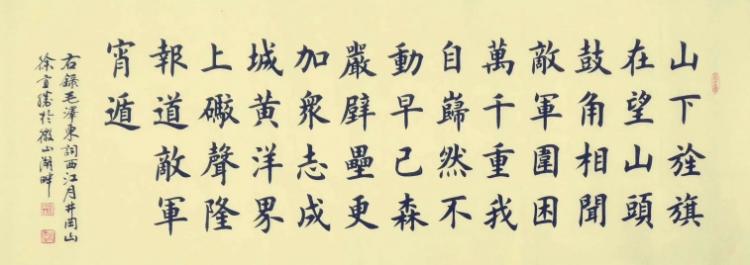 山下旌旗
在望山頭
鼓角相聞
敵軍圍困
萬千重我
自巋然不
動早已森
嚴壁壘更
加衆志成
城黃洋界
上礮聲隆
報道敵軍
宵遁
右錄毛澤東詞西江月井岡山
徐於微山湖畔